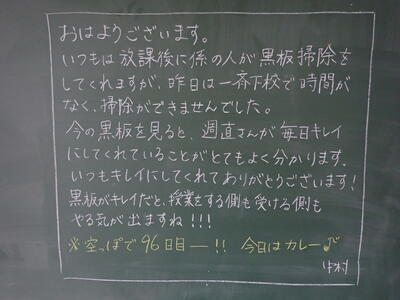 おはようございます。
いつもは放課後に係の人が黒板掃除を
してくれますが、昨日は一斉下校で時間が
なく、掃除ができませんでした。
今の黒板を見ると、週直さんが毎日キレイ
にしてくれていることがとてもよく分かります。
いつもキレイにしてくれてありがとうございます!
黒板がキレイだと、授業をする側も受ける側も
やる気が出ますね!!!
※空っぽで96日目ー!! 今日はカレー♪
中村